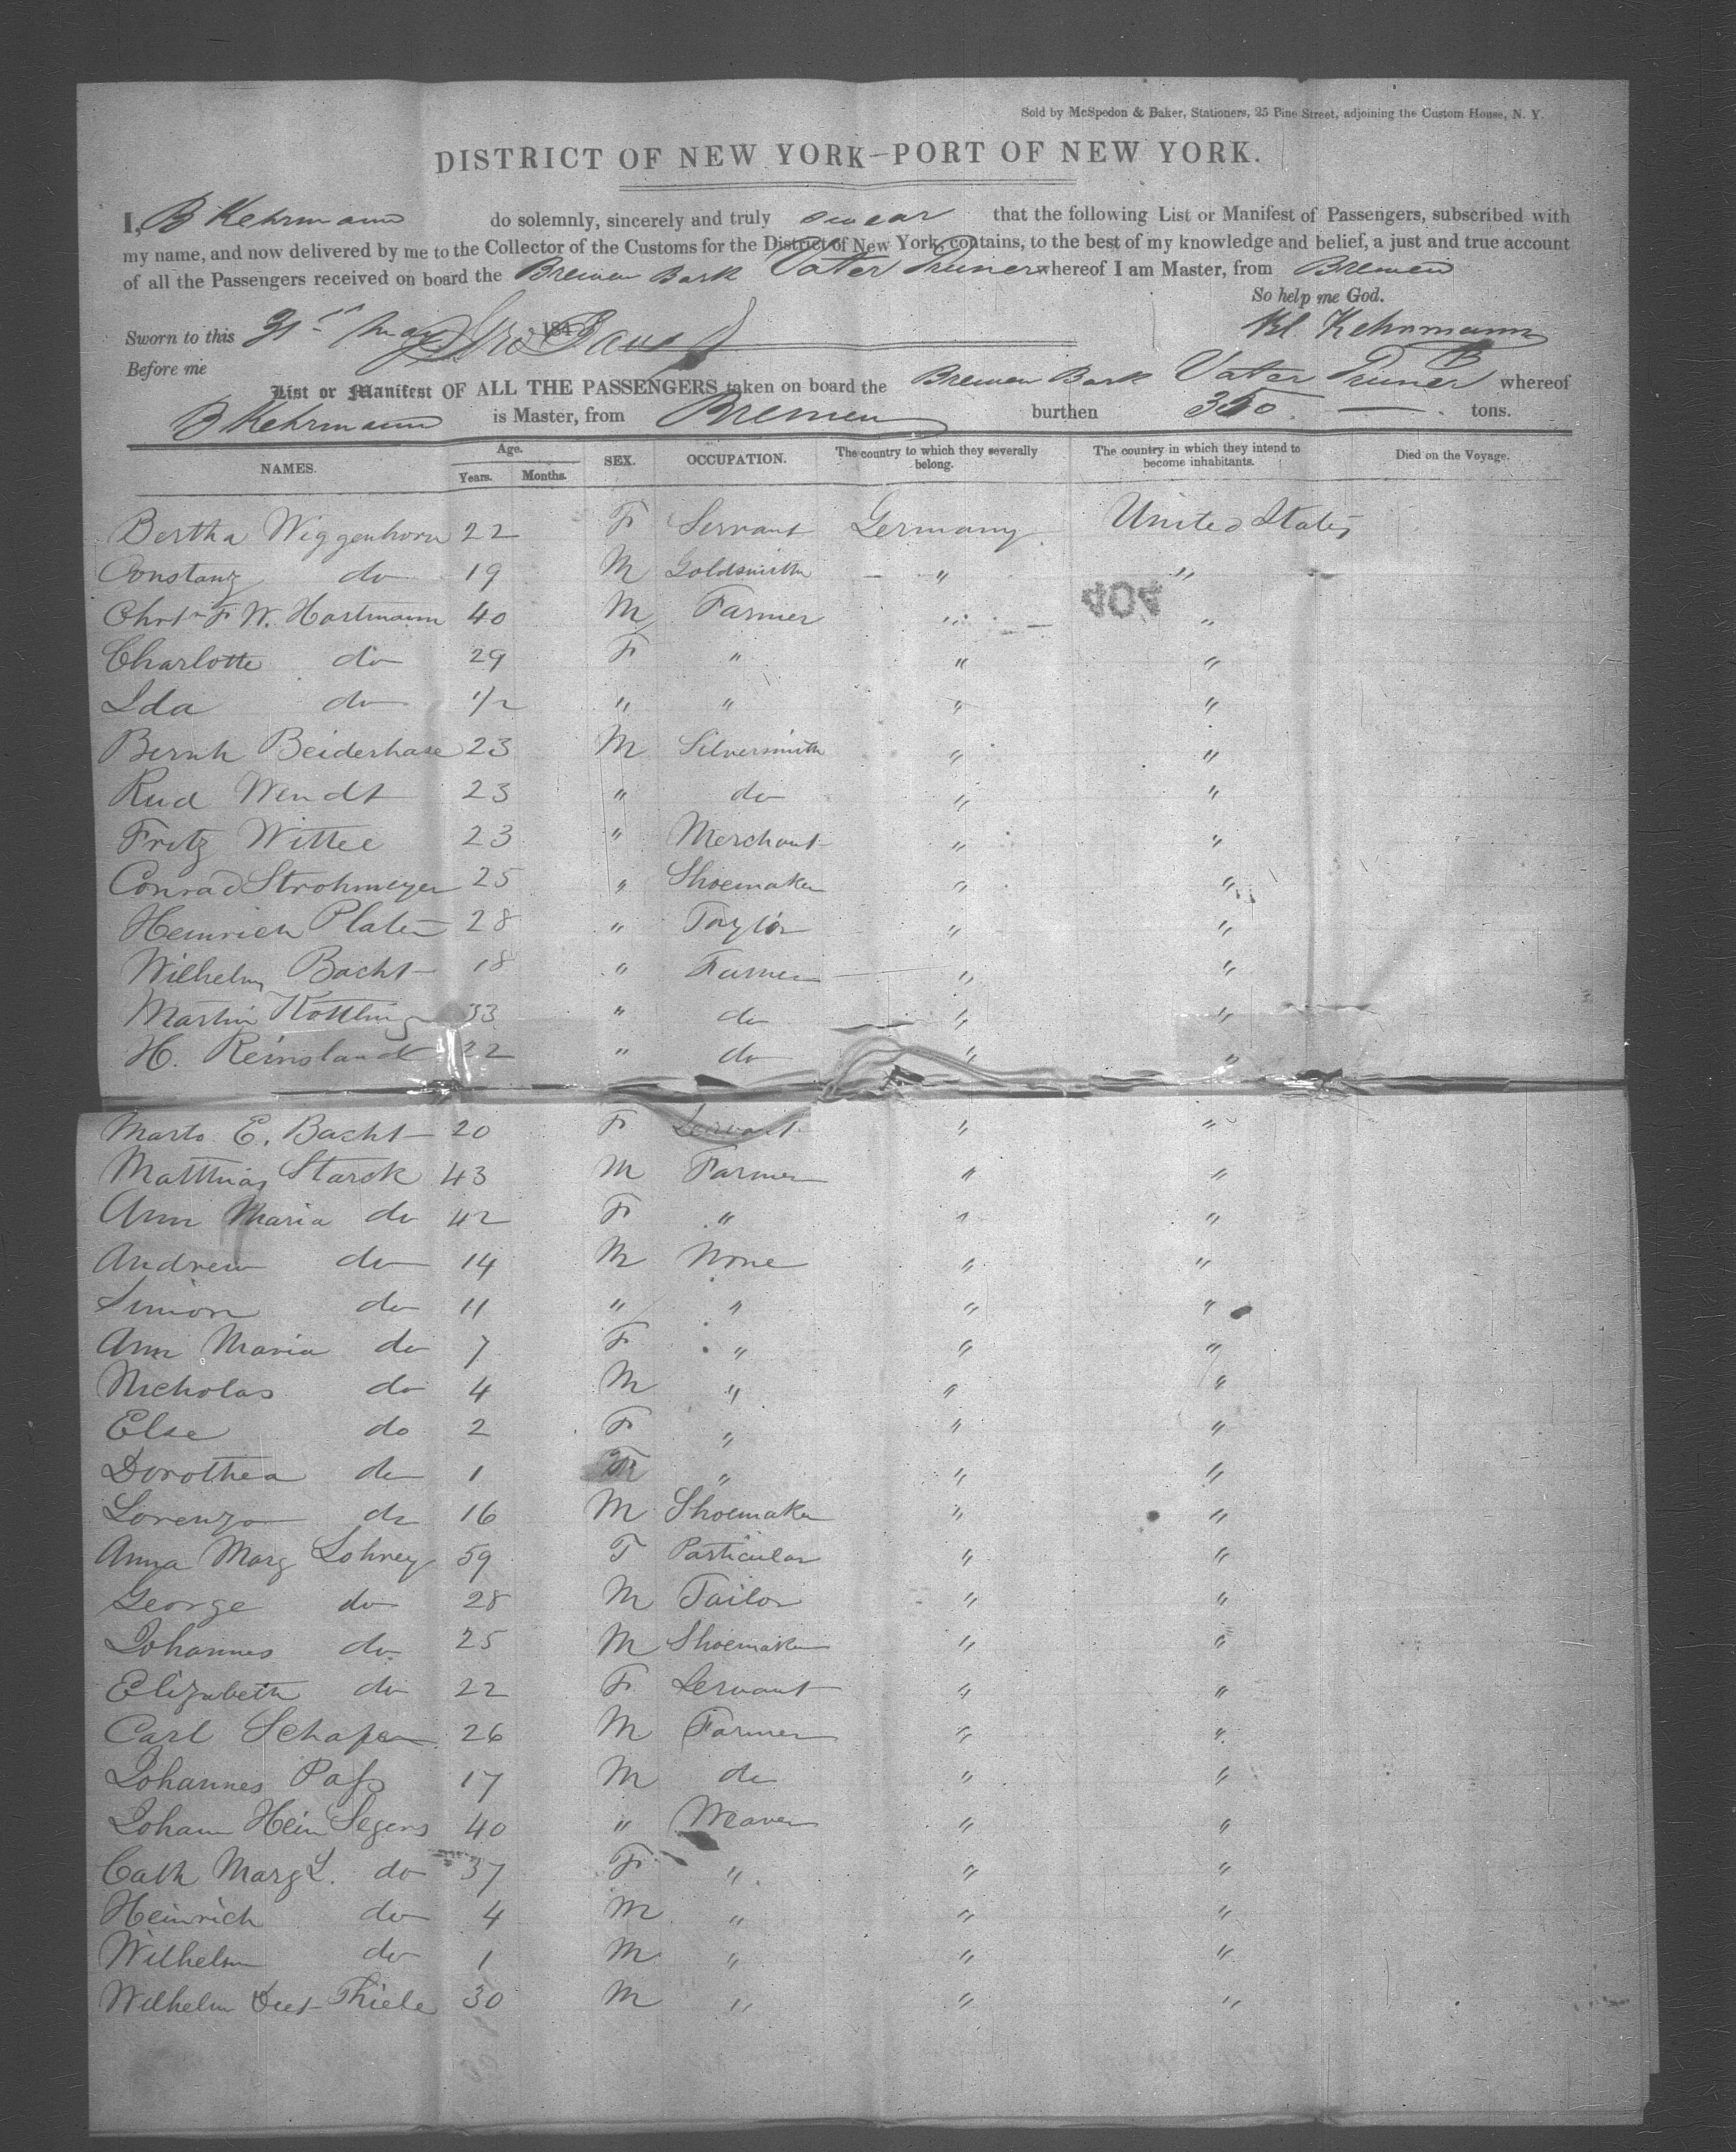 Sold by McSpedon & Baker, Stationers, 25 Pine Street, adjoining the Custom House, N. Y.
DISTRICT OF NEW YORK—PORT OF NEW YORK.
I, B Kehrmann do solemnly, sincerely and truly swear that the following List or Manifest of Passengers, subscribed with
my name, and now delivered by me to the Collector of the Customs for the District of New York, contains, to the best of my knowledge and belief, a just and true account
of all the Passengers received on board the Bremen Bark Vater whereof I am Master, from Bremen
So help me God.
Sworn to this 31st May 184
Kehrmann
Before me
List or Manifest OF ALL THE PASSENGERS taken on board the Bremen Bark Vater whereof
B Kehrmann is Master, from Bremen burthen 350 tons.
NAMES. Age. Years. Months. SEX. OCCUPATION. The country to which they severally belong. The country in which they intend to become inhabitants. Died on the Voyage.
Bertha Wiggenhorn 22 F Servant Germany United States
Constanz do 19 M Goldsmith " "
404
Chrt F W. Hartmann 40 M Farmer " "
Charlotte do 29 F " " "
Ida do 1/2 " " " "
Bernh Beiderhase 23 M Silversmith " "
Rud Wendt 23 " do " "
Fritz Wittee 23 " Merchant " "
Conrad Strohmeyer 25 " Shoemaker " "
Heinrich Platen 28 " Taylor " "
Wilhelm Bacht 18 " Farmer " "
Martin Kottling 33 " do " "
H. Reinslandt 22 " do " "
E. Bacht 20 F Servant " "
Matthias Starck 43 M Farmer " "
Ann Maria do 42 F " " "
Andrew do 14 M None " "
Simon do 11 " " " "
Ann Maria do 7 F " " "
Nicholas do 4 M " " "
Else do 2 F " " "
Dorothea do 1 F " " "
Lorenzo do 16 M Shoemaker " "
Anna Marg Lohrey 59 F Particular " "
George do 28 M Tailor " "
Johannes do 25 M Shoemaker " "
Elizabeth do 22 F Servant " "
Carl Schafer 26 M Farmer " "
Johannes Pass 17 M do " "
Johann Hein Segers 40 " Weaver " "
Cath Marg L. do 37 F " " "
Heinrich do 4 M " " "
Wilhelm do 1 M " " "
Wilhelm Thiele 30 M " " "